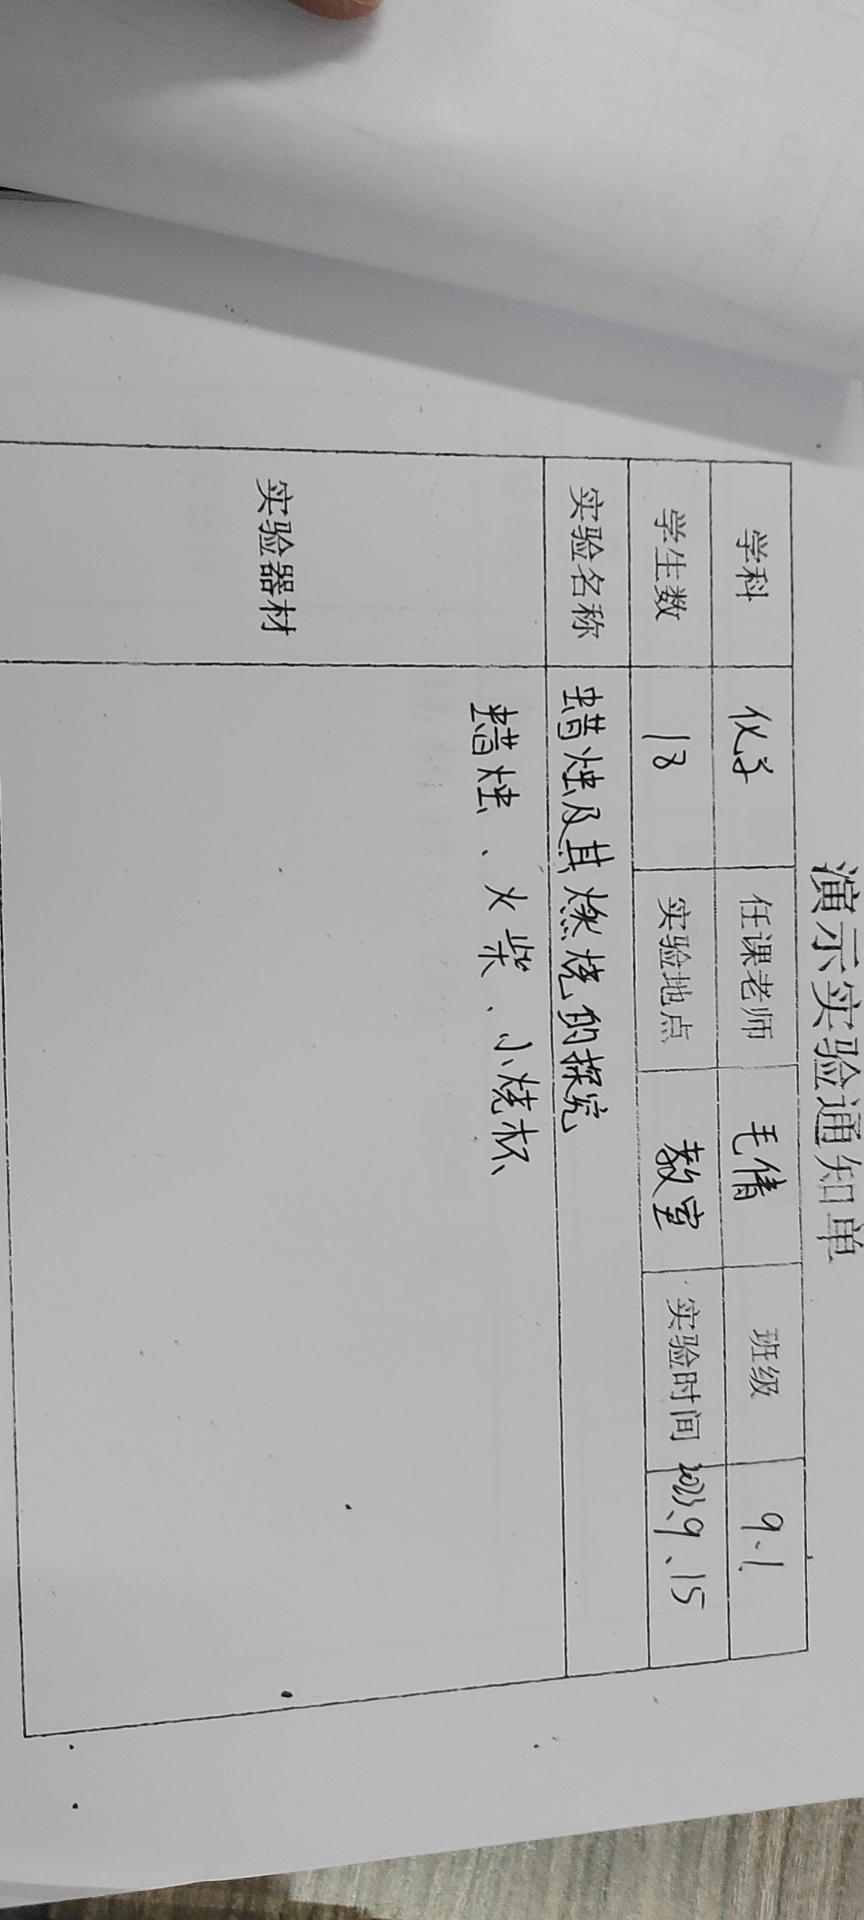 演示实验通知单
学科 化学 任课老师 毛倩 班级 9.1
学生数 18 实验地点 教室 实验时间 2023.9、15
实验名称 蜡烛及其燃烧的探究
实验器材 蜡烛、火柴、小烧杯